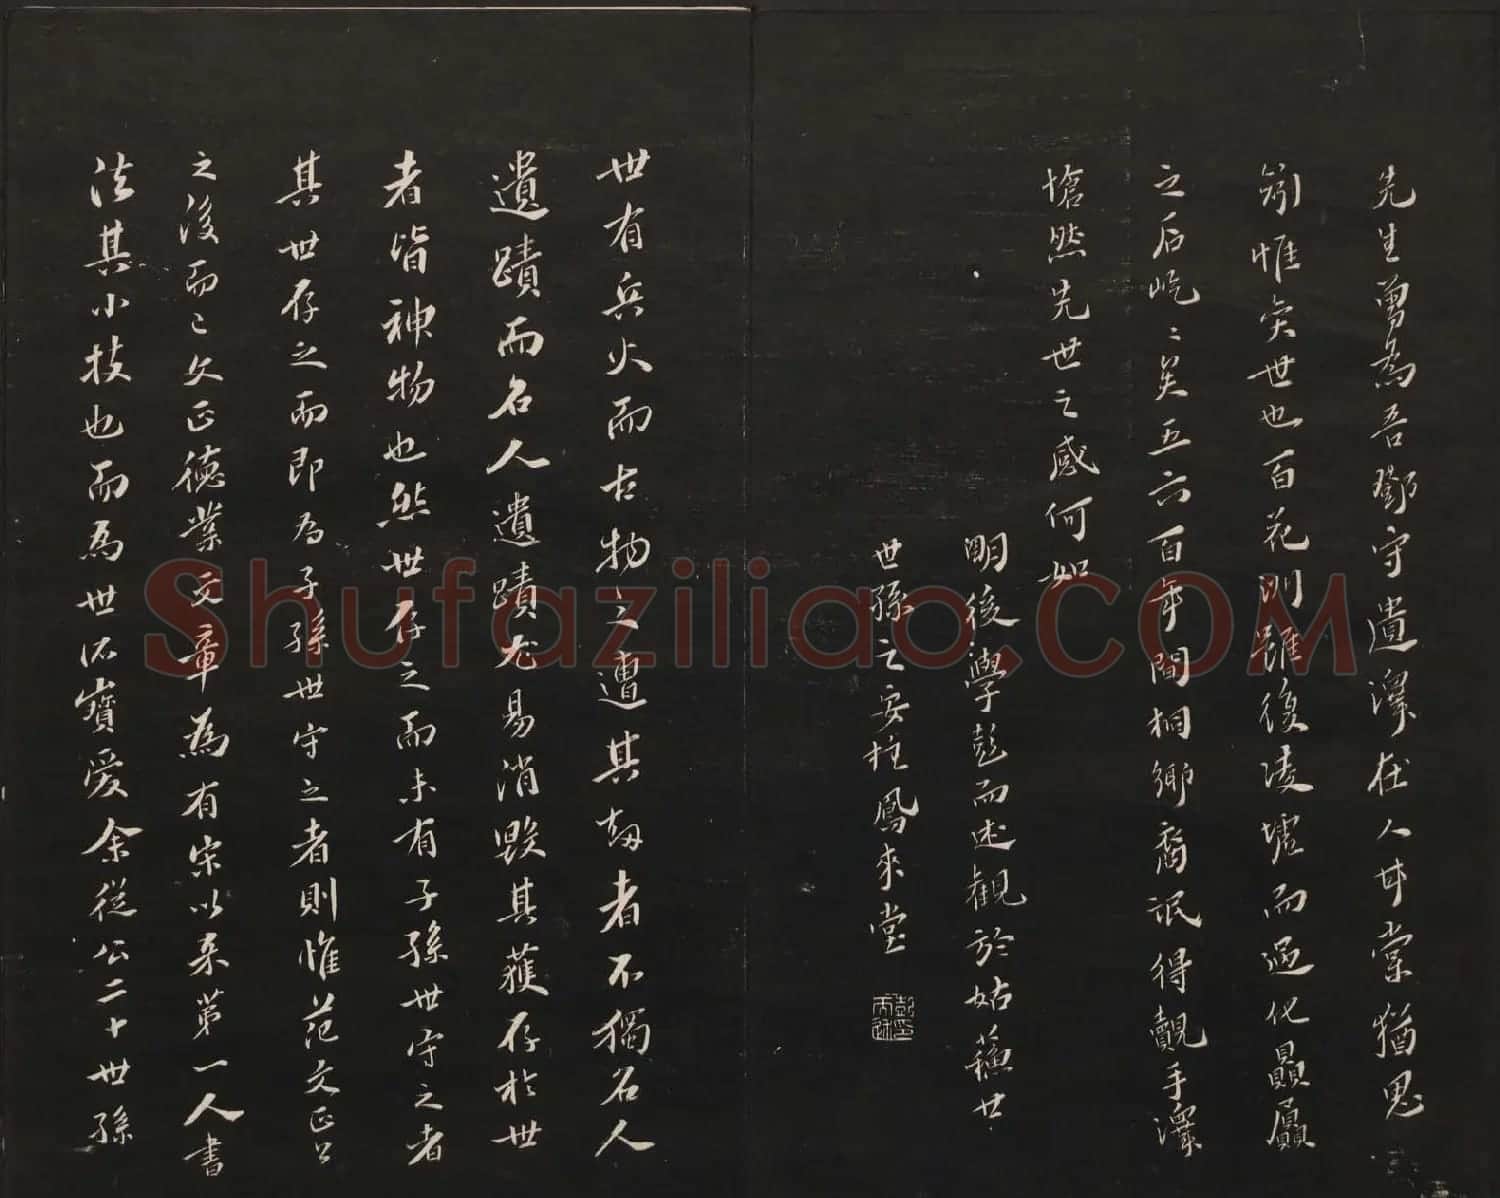 先生曾為吾鄱守遺澤在人甘棠猶思
翦惟奕世也百花洲雖後淩墟而過化贔屭
之后屹〻美五六百年間桐鄉裔氓得覿手澤
愴然先世之感何如
明後學彭而述觀於姑蘇世
世孫之安柱鳳來堂
世有兵火而古物之遭其劫者不獨名人
遺蹟而名人遺蹟尤易消毀其獲存於世
者皆神物也然世存之而未有子孫世守之者
其世存之而即為子孫世守之者則惟范文正公
之後而已文正德業文章為有宋以來第一人書
法其小技也而為世所寶愛余從公二十世孫
Shufaziliao.COM